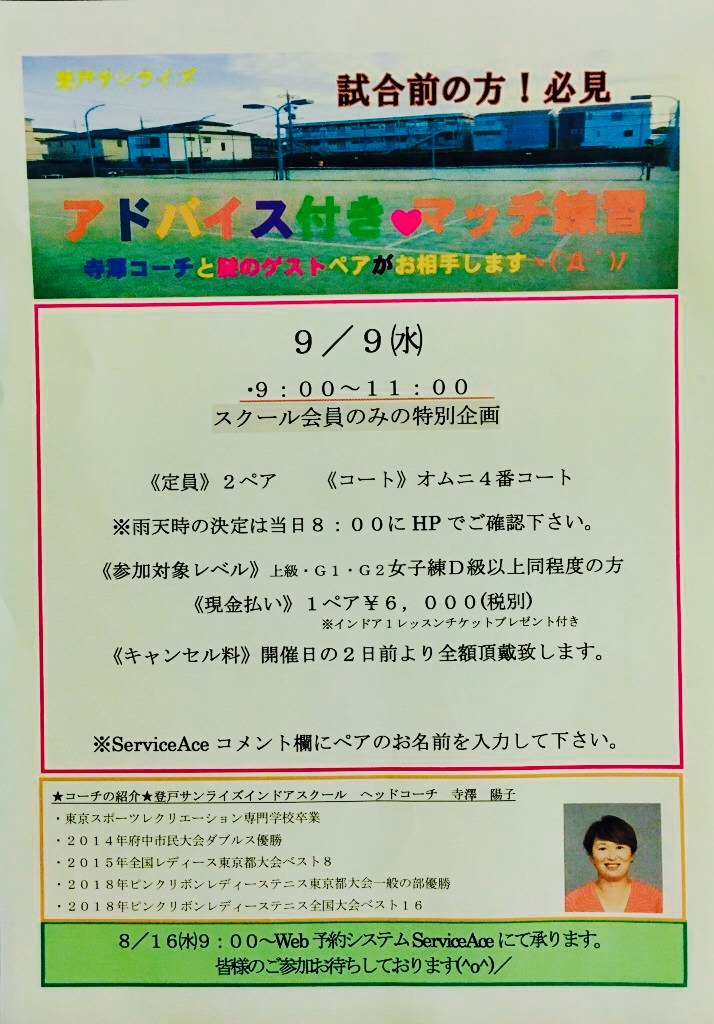 登戸サンライズ
試合前の方！必見
アドバイス付き♥マッチ練習
寺澤コーチと謎のゲストペアがお相手しますヽ(´Д｀)ﾉ
９／９㈬
・９：００～１１：００
スクール会員のみの特別企画
《定員》２ペア　《コート》オムニ４番コート
※雨天時の決定は当日８：００に HP でご確認下さい。
《参加対象レベル》上級・Ｇ１・Ｇ２女子練Ｄ級以上同程度の方
《現金払い》１ペア￥６，０００(税別)
※インドア１レッスンチケットプレゼント付き
《キャンセル料》開催日の２日前より全額頂戴致します。
※ServiceAce コメント欄にペアのお名前を入力して下さい。
★コーチの紹介★登戸サンライズインドアスクール　ヘッドコーチ　寺澤　陽子
・東京スポーツレクリエーション専門学校卒業
・２０１４年府中市民大会ダブルス優勝
・２０１５年全国レディース東京都大会ベスト８
・２０１８年ピンクリボンレディーステニス東京都大会一般の部優勝
・２０１８年ピンクリボンレディーステニス全国大会ベスト１６
８／１６㈬９：００～Web 予約システム ServiceAce にて承ります。
皆様のご参加お待ちしております(^o^)／